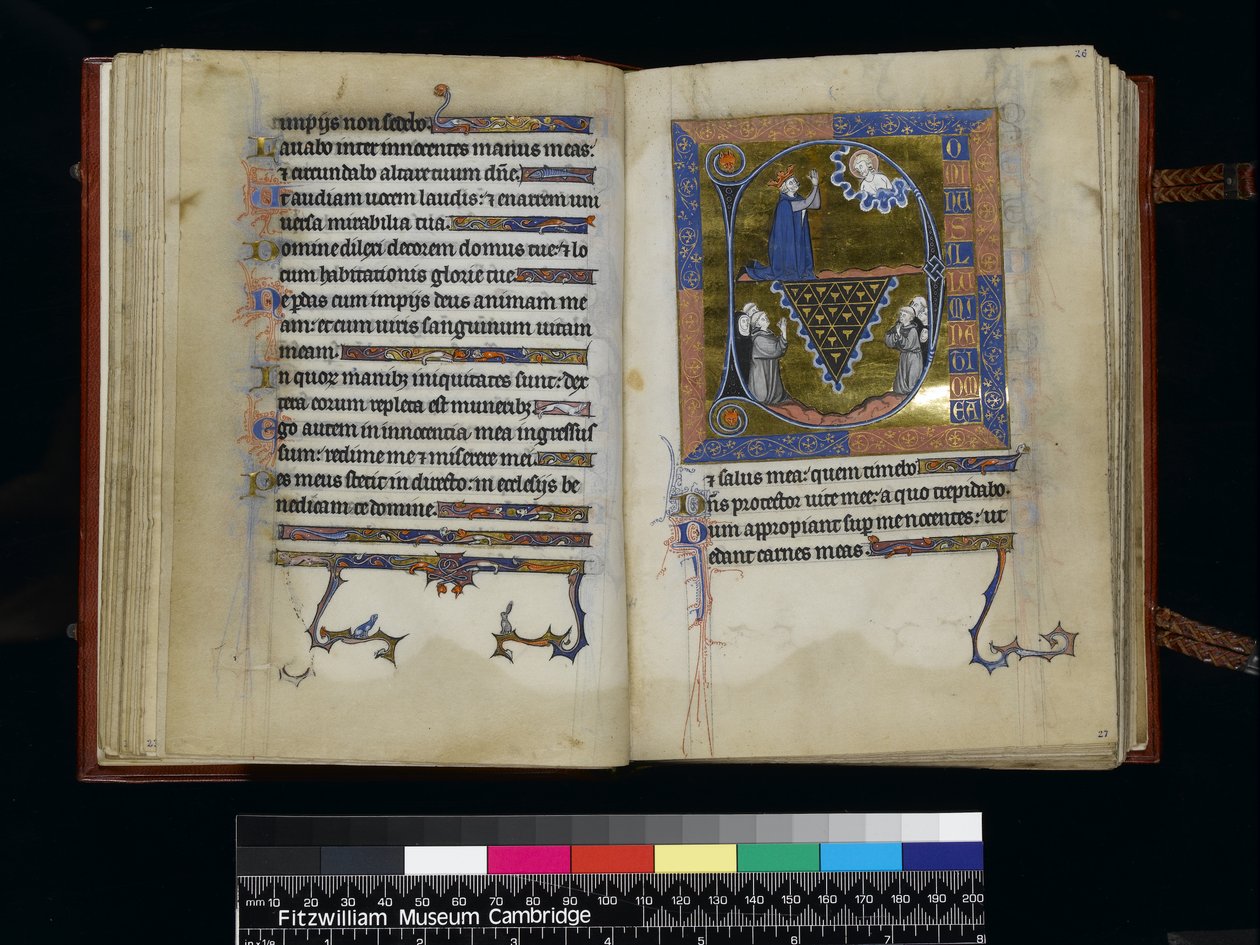 impijs non sedebo.
Lauabo inter innocentes manus meas:
⁊ circundabo altare tuum dñe.
Ut audiam uocem laudis: ⁊ enarrem uni
uersa mirabilia tua.
Domine dilexi decorem domus tue: ⁊ lo
cum habitationis glorie tue.
Ne perdas cum impijs deus animam me
am: et cum uiris sanguinum uitam
meam.
In quoꝝ manibꝫ iniquitates sunt: dex
tera eorum repleta est muneribꝫ
Ego autem in innocentia mea ingressus
sum: redime me ⁊ miserere mei.
Pes meus stetit in directo: in ecclesijs be
nedicam te domine.
26
D
OMINUS ILLUMINATIO MEA
⁊ salus mea: quem timebo
Dñs protector uite mee: a quo trepidabo.
Dum appropiant sup me nocentes: ut
edant carnes meas.
27
mm 10 20 30 40 50 60 70 80 90 100 110 120 130 140 150 160 170 180 190 200
Fitzwilliam Museum Cambridge
in x 1/8 1 2 3 4 5 6 7 8